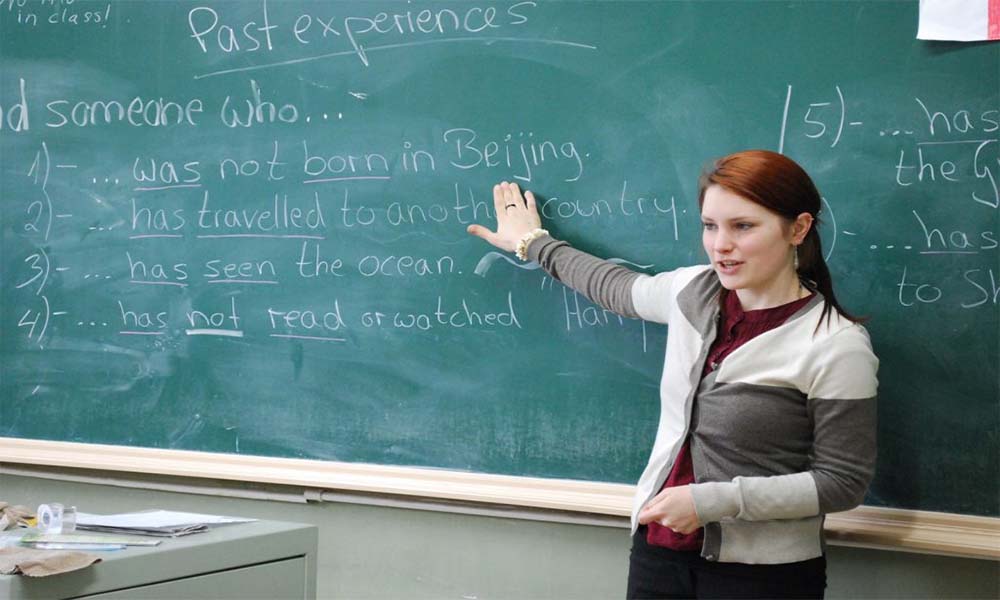 in class!
Past experiences
someone who...
1) - ... was not born in Beijing.
2) - ... has travelled to another country.
3) - ... has seen the ocean.
4) - ... has not read or watched "Harry
5) - ... has
the G
) - ... has
to Sh